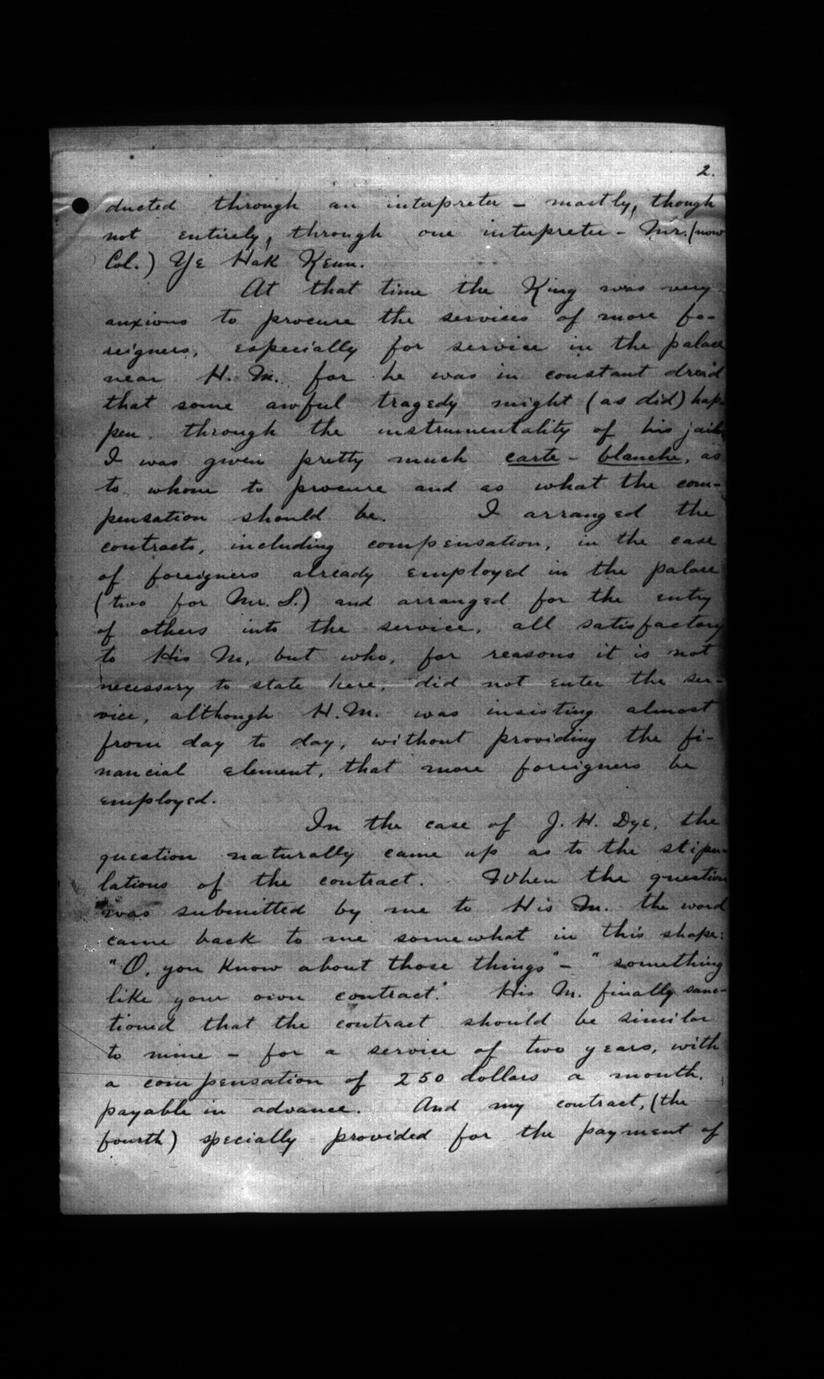 2.
ducted through an interpreter - mostly, though
not entirely, through one interpreter - Mr. (now
Col.) Ye Hak Keun.
At that time the King was very
anxious to procure the services of more fo-
reigners, especially for service in the palace
near H. M. for he was in constant dread
that some awful tragedy might (as did) hap-
pen through the instrumentality of his
I was given pretty much carte - blanche, as
to whom to procure and as what the com-
pensation should be. I arranged the
contracts, including compensation, in the case
of foreigners already employed in the palace
(two for Mr. S.) and arranged for the entry
of others into the service, all satisfactory
to His M, but who, for reasons it is not
necessary to state here, did not enter the ser-
vice, although H. M. was insisting almost
from day to day, without providing the fi-
nancial element, that more foreigners be
employed.
In the case of J. H. Dye, the
question naturally came up as to the stipu-
lations of the contract. When the question
was submitted by me to His M. the word
came back to me somewhat in this shape:
"O, you know about those things" - "something
like your own contract." His M. finally sanc-
tioned that the contract should be similar
to mine - for a service of two years, with
a compensation of 250 dollars a month,
payable in advance. And my contract, (the
fourth) specially provided for the payment of